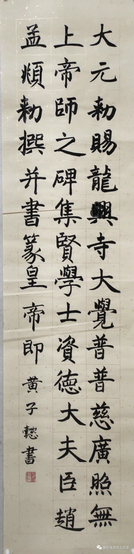 大元勑賜龍興寺大覺普慈廣照無
上帝師之碑集賢學士資德大夫臣趙
孟頫勑撰并書篆皇帝即
黃子懿書